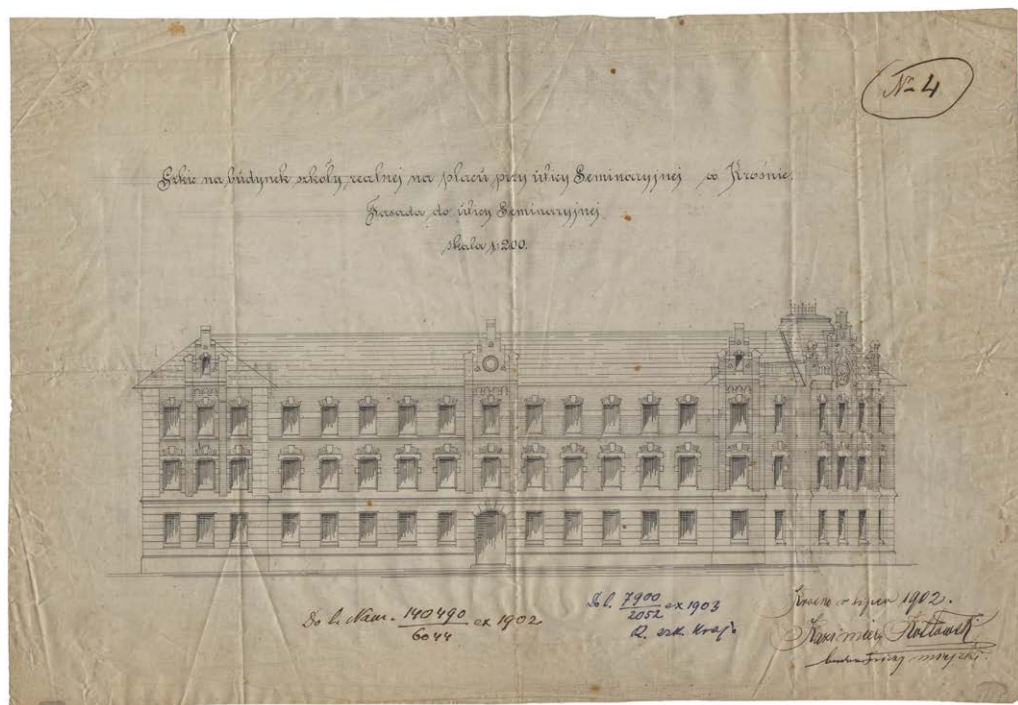 № 4
Szkic na budynek szkoły realnej na placu przy ulicy Seminaryjnej w Krośnie.
Fasada do ulicy Seminaryjnej.
skala 1:200.
Do l. Nam. 140490/6044 ex 1902
Do l. 7900/2052 ex 1903
R. szk. Kraj.
Krosno w lipcu 1902.
Kazimierz
miejski.